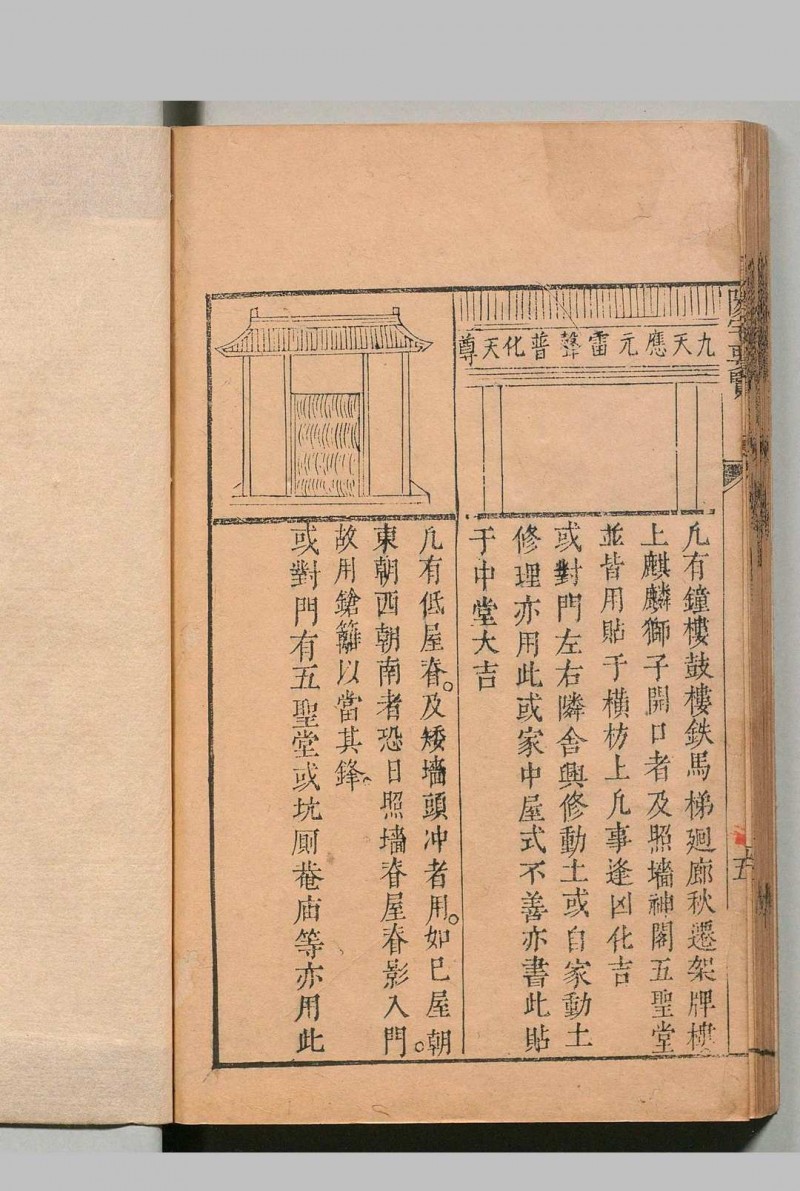 九天應元雷聲普化天尊
凢有鐘樓鼓樓鉄馬梯廻廊秋遷架牌樓。
上麒麟獅子開口者及照墻神閣五聖堂
並皆用貼于橫枋上凢事逢凶化吉
或對門左右隣舍興修動土或自家動土
修理亦用此或家中屋式不善亦書此貼
于中堂大吉
凢有低屋脊。及矮墻頭冲者用。如巳屋朝
東朝西朝南者恐日照墻脊屋脊影入門。
故用鎗籬以當其鋒。
或對門有五聖堂或坑厠菴庙等亦用此
五